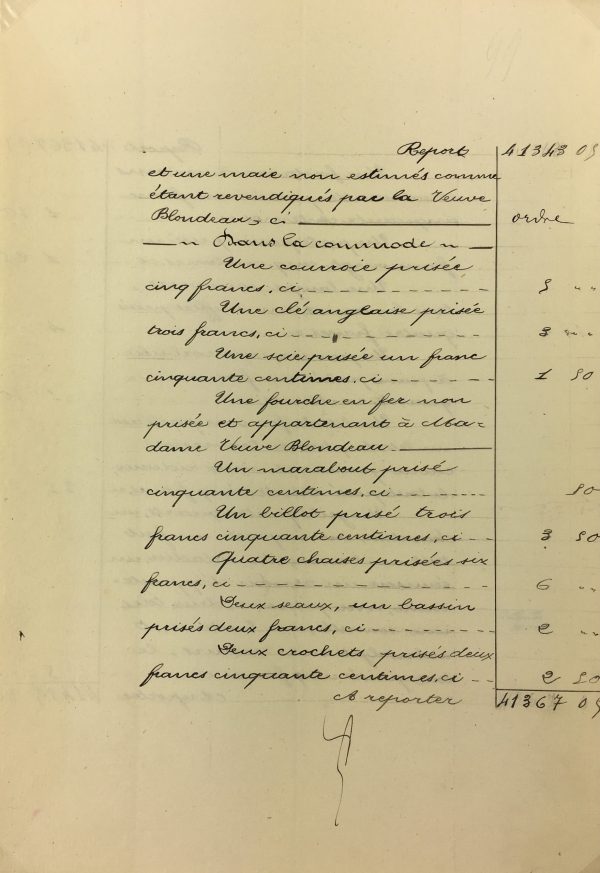 Report 41343 05
et une maie non estimés comme
étant revendiqués par la Veuve
Blondeau, ci ordre
— " Dans la commode " —
Une courroie prisée
cinq francs, ci 5 "
Une clé anglaise prisée
trois francs, ci 3 "
Une scie prisée un franc
cinquante centimes, ci 1 50
Une fourche en fer non
prisée et appartenant à Ma-
dame Veuve Blondeau
Un marabout prisé
cinquante centimes, ci 50
Un billot prisé trois
francs cinquante centimes, ci 3 50
Quatre chaises prisées six
francs, ci 6 "
Deux seaux, un bassin
prisés deux francs, ci 2 "
Deux crochets prisés deux
francs cinquante centimes, ci 2 50
A reporter 41367 05